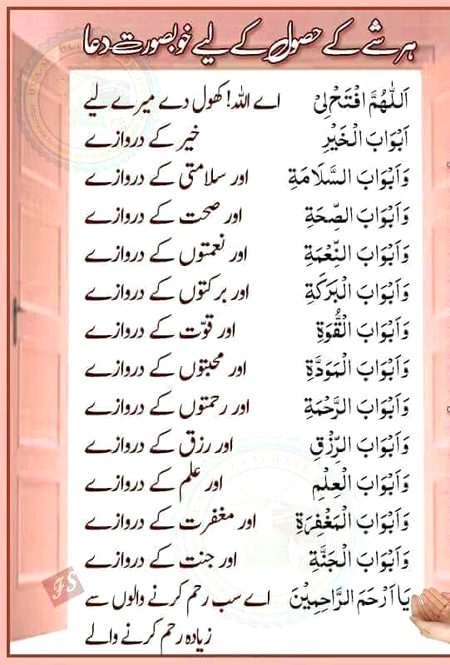 ہر شے کے حصول کے لیے خوبصورت دعا
اَللّٰهُمَّ افْتَحْ لِیْ اے اللہ! کھول دے میرے لیے
اَبْوَابَ الْخَیْرِ خیر کے دروازے
وَاَبْوَابَ السَّلَامَةِ اور سلامتی کے دروازے
وَاَبْوَابَ الصِّحَةِ اور صحت کے دروازے
وَاَبْوَابَ النِّعْمَةِ اور نعمتوں کے دروازے
وَاَبْوَابَ الْبَرَكَةِ اور برکتوں کے دروازے
وَاَبْوَابَ الْقُوَّةِ اور قوّت کے دروازے
وَاَبْوَابَ الْمَوَدَّةِ اور محبتوں کے دروازے
وَاَبْوَابَ الرَّحْمَةِ اور رحمتوں کے دروازے
وَاَبْوَابَ الرِّزْقِ اور رزق کے دروازے
وَاَبْوَابَ الْعِلْمِ اور علم کے دروازے
وَاَبْوَابَ الْمَغْفِرَةِ اور مغفرت کے دروازے
وَاَبْوَابَ الْجَنَّةِ اور جنت کے دروازے
یَا اَرْحَمَ الرَّاحِمِیْنَ اے سب رحم کرنے والوں سے
زیادہ رحم کرنے والے
FS